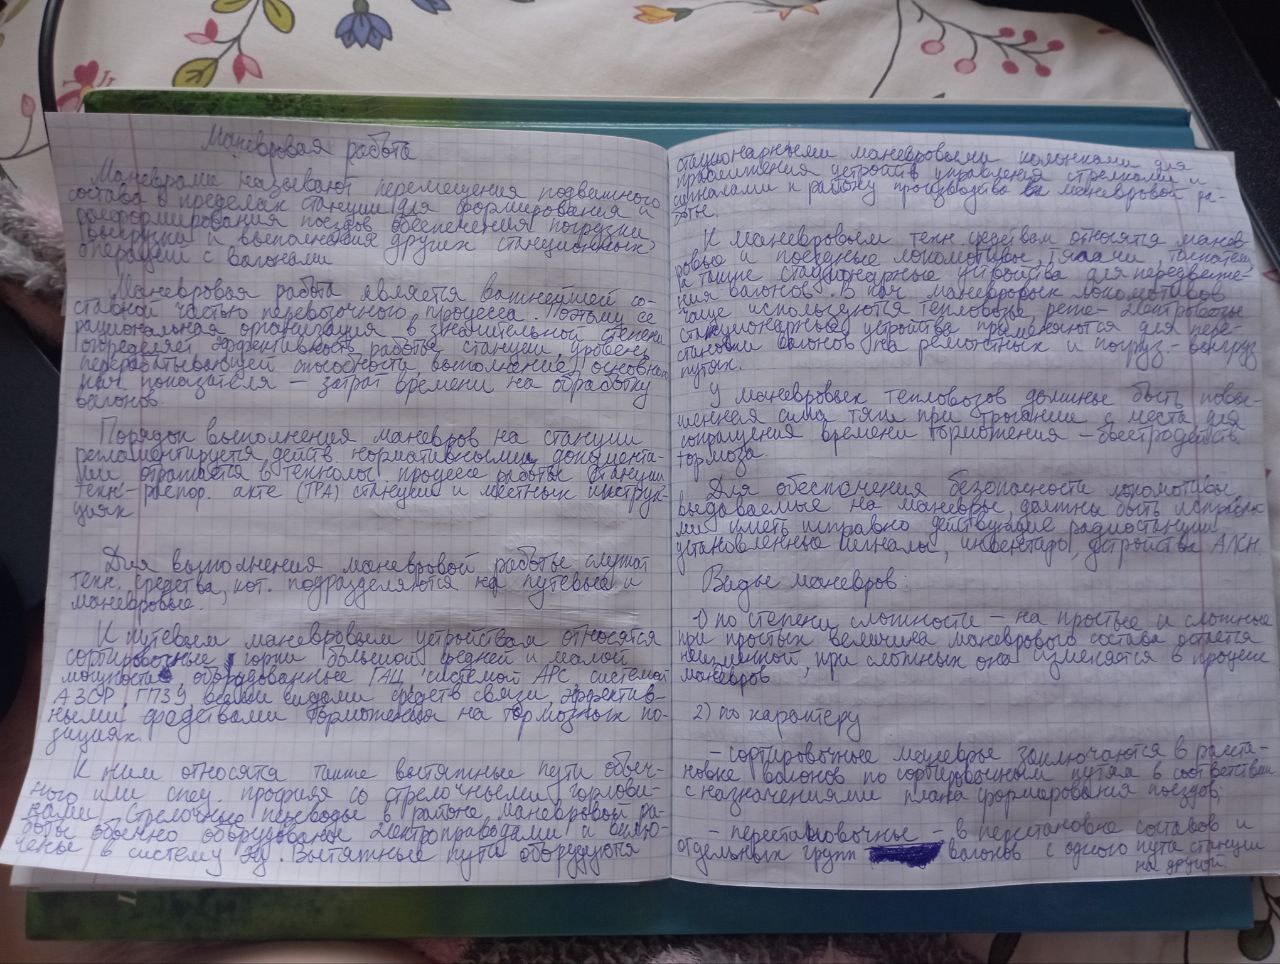 Маневровая работа
Маневрами называют перемещения подвижного
состава в пределах станции для формирования и
расформирования поездов обеспечения погрузки
выгрузки и выполнения других станционных
операции с вагонами
Маневровая работа является важнейшей со-
ставной частью перевозочного процесса. Поэтому её
рациональная организация в значительной степени
определяет эффективность работы станции, уровень
перерабатывающей способности, выполнение основн
показателя — затрат времени на обработку
вагонов
Порядок выполнения маневров на станции
регламентируется действ нормативными документа-
ми, отражается в технолог. процессе работы станции
техн.-распор. акте (ТРА) станции и местных инструк-
циях
Для выполнения маневровой работы служат
техн. средства, кот. подразделяются на путевые и
маневровые.
К путевым маневровым устройствам относятся
сортировочные горки большой средней и малой
мощности оборудованные ГАЦ, системой АРС, системой
АЗСР, ГПЗУ, всеми видами средств связи, эффектив-
ными средствами торможения на тормозных по-
зициях.
К ним относятся также вытяжные пути обыч-
ного или спец. профиля со стрелочными горлови-
нами. Стрелочные переводы в районе маневровой ра-
боты обычно оборудованы электроприводами и вклю-
чены в систему ЭЦ. Вытяжные пути оборудуются
стационарными маневровыми колонками для
приближения устройств управления стрелками и
сигналами к району производства маневровой ра-
боты.
К маневровым техн. средствам относятся манев-
ровые и поездные локомотивы, тягачи, толкатели
а также стационарные устройства для передвиже-
ния вагонов. В кач маневровых локомотивов
чаще используются тепловозы, реже - электровозы
стационарные устройства применяются для пере-
становки вагонов на ремонтных и погруз.-выгруз
путях.
У маневровых тепловозов должны быть повы-
шенная сила тяги при трогании с места для
сокращения времени торможения – быстродейств
тормоза.
Для обеспечения безопасности локомотивы,
выдаваемые на маневры, должны быть исправны-
ми иметь исправно действующие радиостанции
установленные сигналы, инвентарь, устройства АЛСН.
Виды маневров:
1) по степени сложности — на простые и сложные
при простых величина маневрового состава остается
неизменной, при сложных она изменяется в процессе
маневров
2) по характеру
– сортировочные маневры заключаются в расста-
новке вагонов по сортировочным путям в соответствии
с назначениями плана формирования поездов;
– перестановочные – в перестановке составов и
отдельных групп вагонов с одного пути станции
на другой